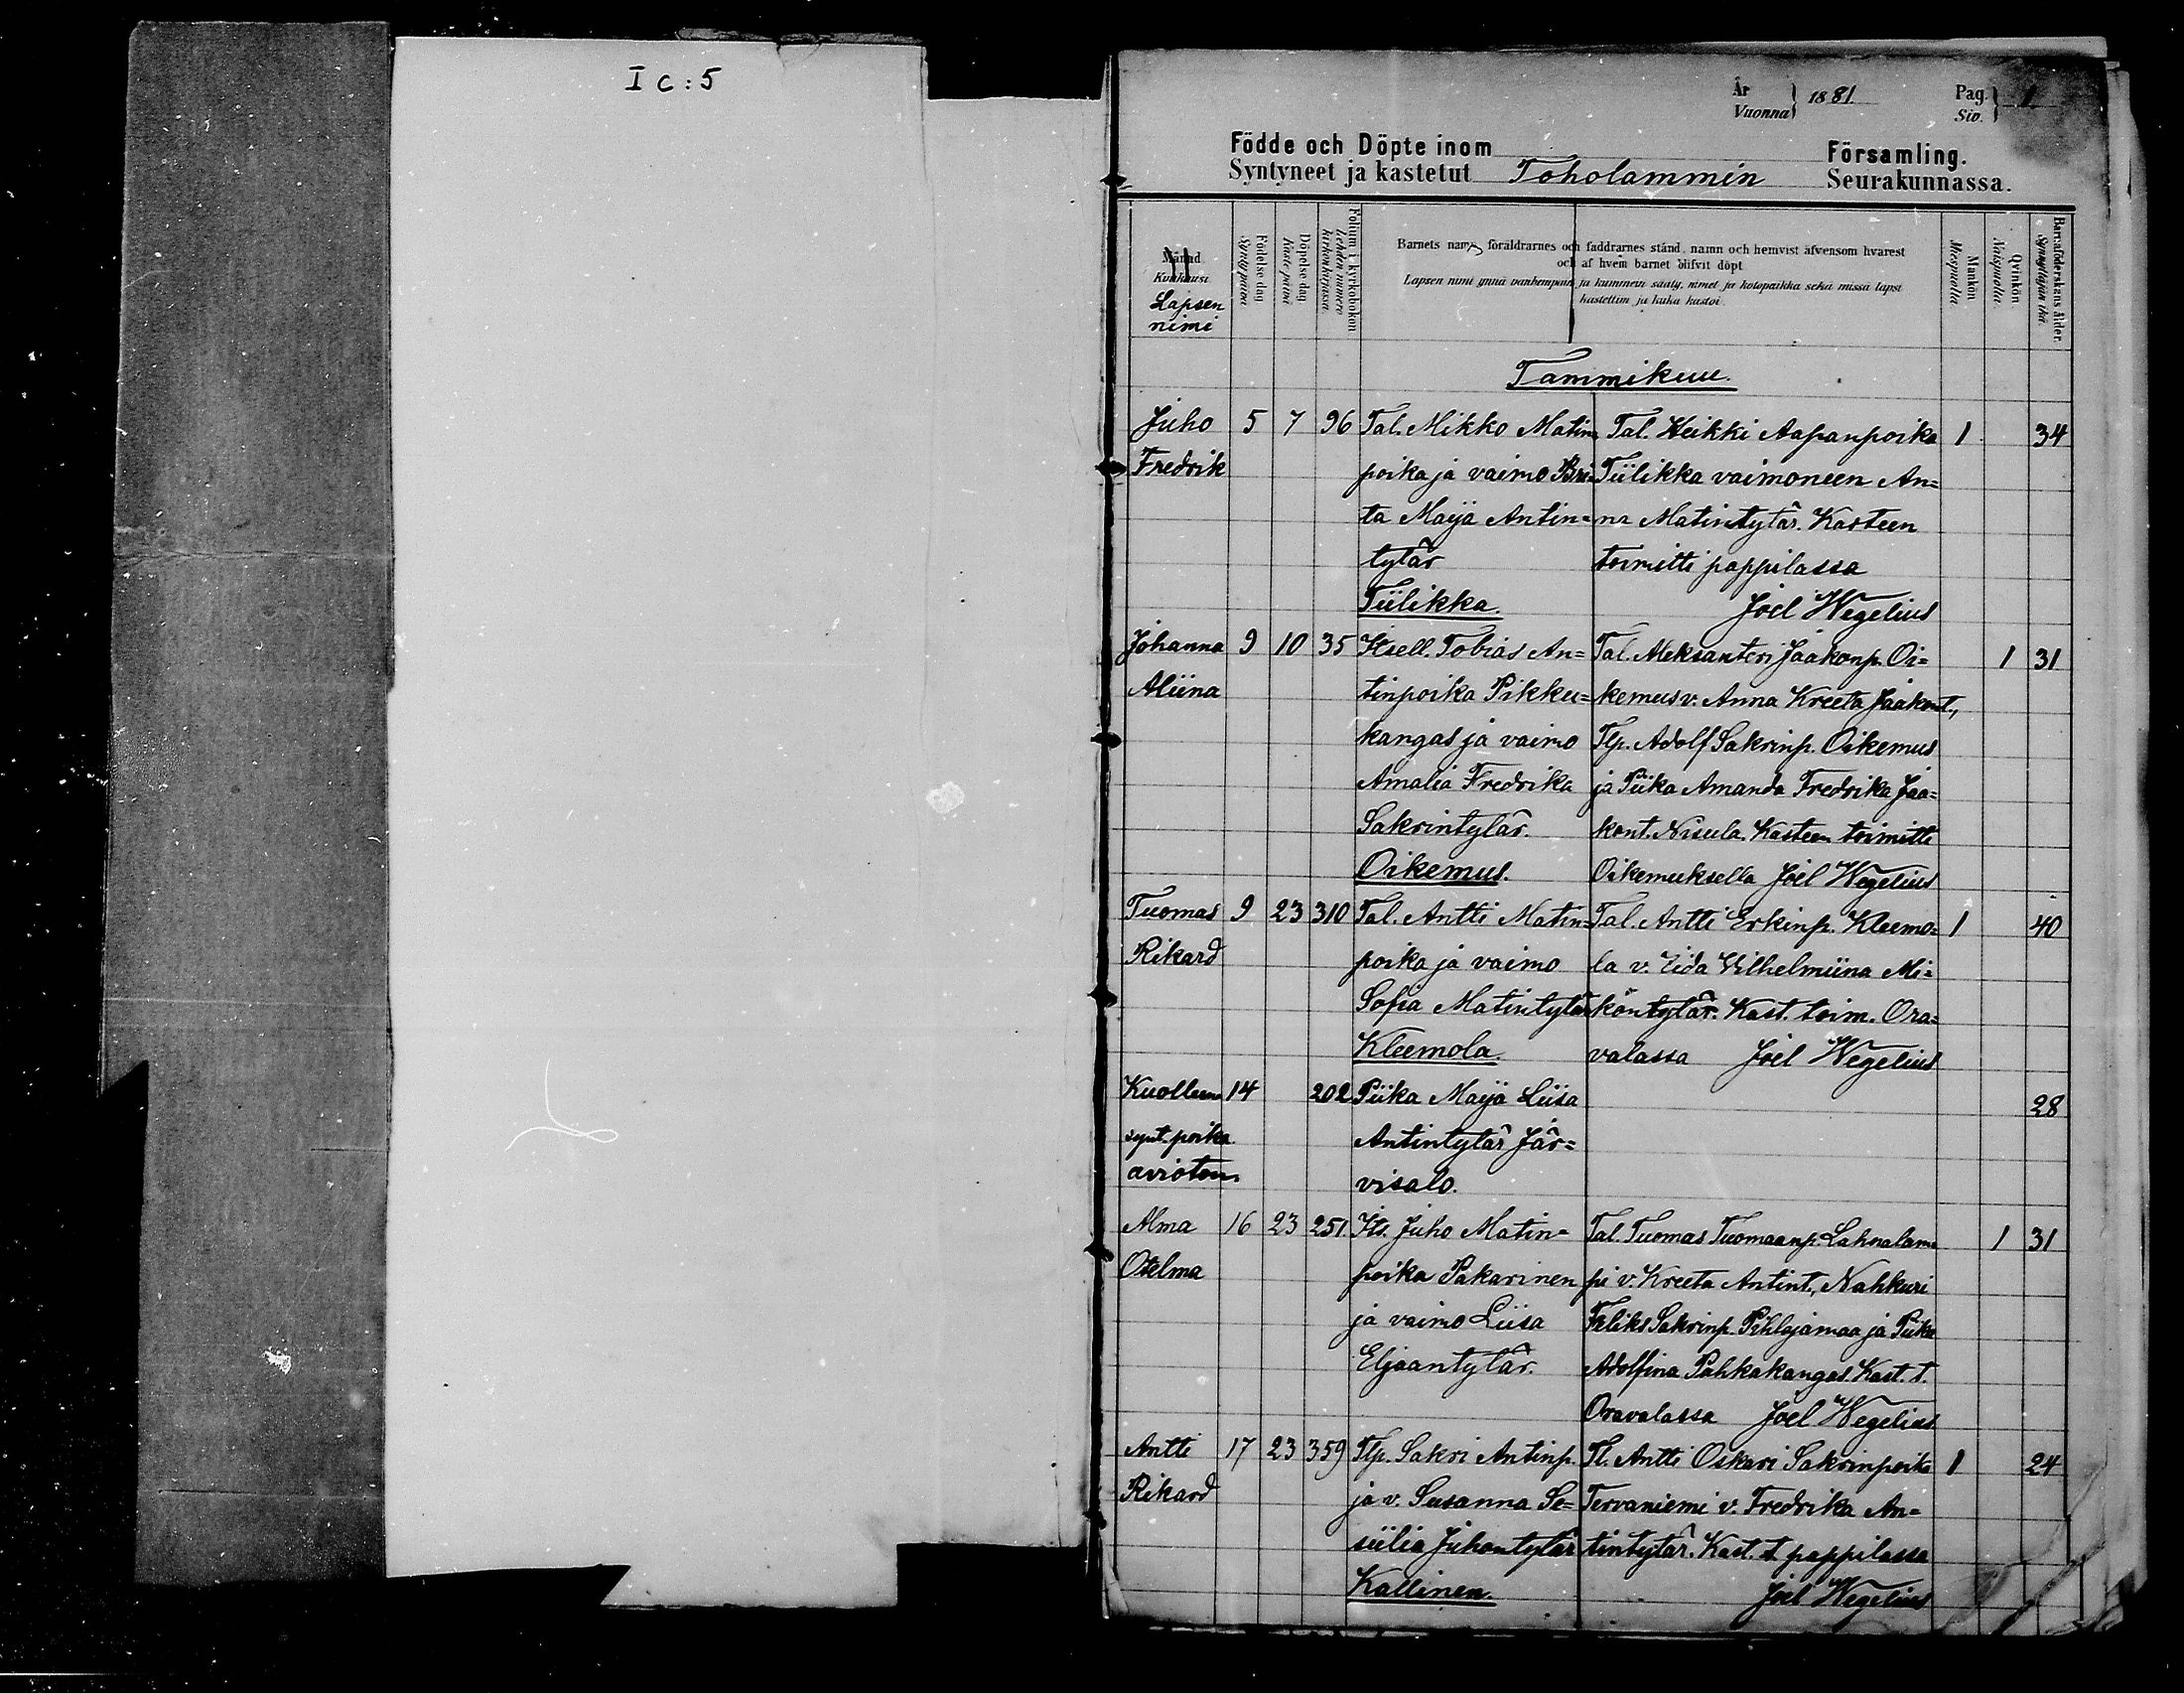 I C : 5
År
Vuonna } 1881.
Pag.
Siv. } 1
Födde och Döpte inom Församling.
Syntyneet ja kastetut Toholammin Seurakunnassa.
Månad
Kuukausi
Lapsen
nimi
Födelsedag
Syntypäivä
Döpelsedag
Kaste päivä
Folium i kyrkoboken
Lehden numero
kirkonkirjassa
Barnets namn, föräldrarnes och faddrarnes stånd, namn och hemvist äfvensom hvarest
och af hvem barnet blifvit döpt
Lapsen nimi ynnä vanhempain ja kummein sääty, nimet ja kotopaikka sekä missä lapsi
kastettiin ja kuka kastoi.
Mankön
Miespuolia.
Qvinkön.
Naispuolia.
Barnaföderskans ålder.
Synnyttäjän ikä.
Tammikuu.
Juho 5 7 96 Tal. Mikko Matin Tal. Heikki Aapanpoika 1 34
Fredrik poika ja vaimo Brii- Tiilikka vaimoneen An=
ta Maija Antin= na Matintytär. Kasteen
tytär toimitti pappilassa
Tiilikka. Joel Wegelius
Johanna 9 10 35 Itsell. Tobias An= Tal. Aleksanteri Jaakonp. Oi= 1 31
Aliina tinpoika Pikku= kemus v. Anna Kreeta Jaakont.,
kangas ja vaimo Tlp. Adolf Sakrinp. Oikemus
Amalia Fredrika ja Piika Amanda Fredrika Jaa=
Sakrintytär. kont. Nisula. Kasteen toimitti
Oikemus. Oikemuksella Joel Wegelius
Tuomas 9 23 310 Tal. Antti Matin= Tal. Antti Erkinp. Kleemo= 1 40
Rikard poika ja vaimo la v. Iida Vilhelmiina Mi=
Sofia Matintytär köntytär. Kast. toim. Ora=
Kleemola. valassa Joel Wegelius
Kuolleena 14 202 Piika Maija Liisa 28
synt. poika Antintytär Jär=
avioton visalo.
Alma 16 23 251. Its. Juho Matin= Tal. Tuomas Tuomaanp. Lahnalam= 1 31
Otelma poika Pakarinen pi v. Kreeta Antint., Nahkuri
ja vaimo Liisa Feliks Sakrinp. Pihlajamaa ja Piika
Eljaantytär. Adolfina Pahkakangas. Kast. t.
Oravalassa Joel Wegelius
Antti 17 23 359 Tlp. Sakri Antinp. Tl. Antti Oskari Sakrinpoika 1 24
Rikard ja v. Susanna Se= Tervaniemi v. Fredrika An=
siilia Juhontytär tintytär. Kast. t. pappilassa
Kallinen. Joel Wegelius